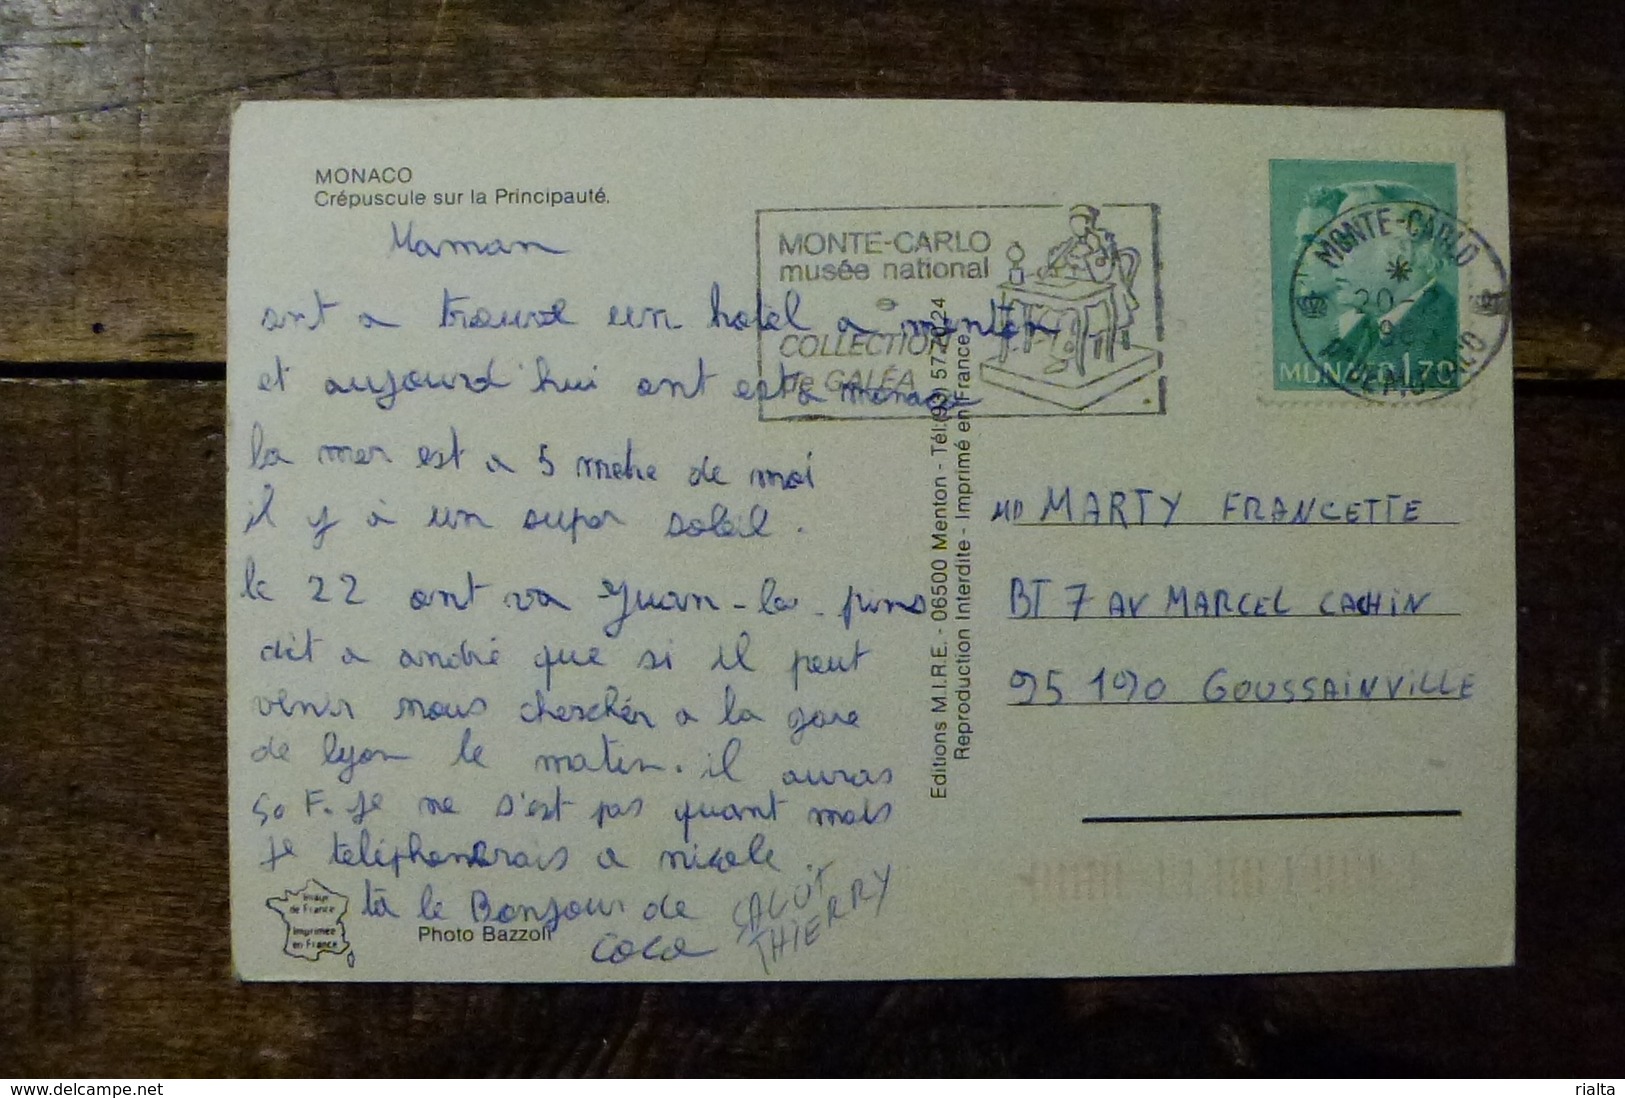 MONACO
Crépuscule sur la Principauté.
Maman
ont a trouvé un hotel a menton
et aujourd'hui ont est a monaco
la mer est a 5 metre de moi
il y à un super soleil.
le 22 ont va Juan-la-pins
dit a andré que si il peut
venir nous cherchér a la gare
de lyon le matin. il auras
50 F. Je ne s'est pas quant mais
Je téléphonerais a nicole.
le Bonjour de
Coco
SALUT
THIERRY
Photo Bazzoli
Image
de France
Imprimée
en France
MONTE-CARLO
musée national
COLLECTION
de GALÉA
Editions M.I.R.E. - 06500 Menton - Tél.(93) 57.70.24
Reproduction Interdite - Imprimé en France
MONTE-CARLO
20-
MONACO 1,70
MD MARTY FRANCETTE
BT 7 AV MARCEL CACHIN
95 190 GOUSSAINVILLE
rialta
delcampe.net